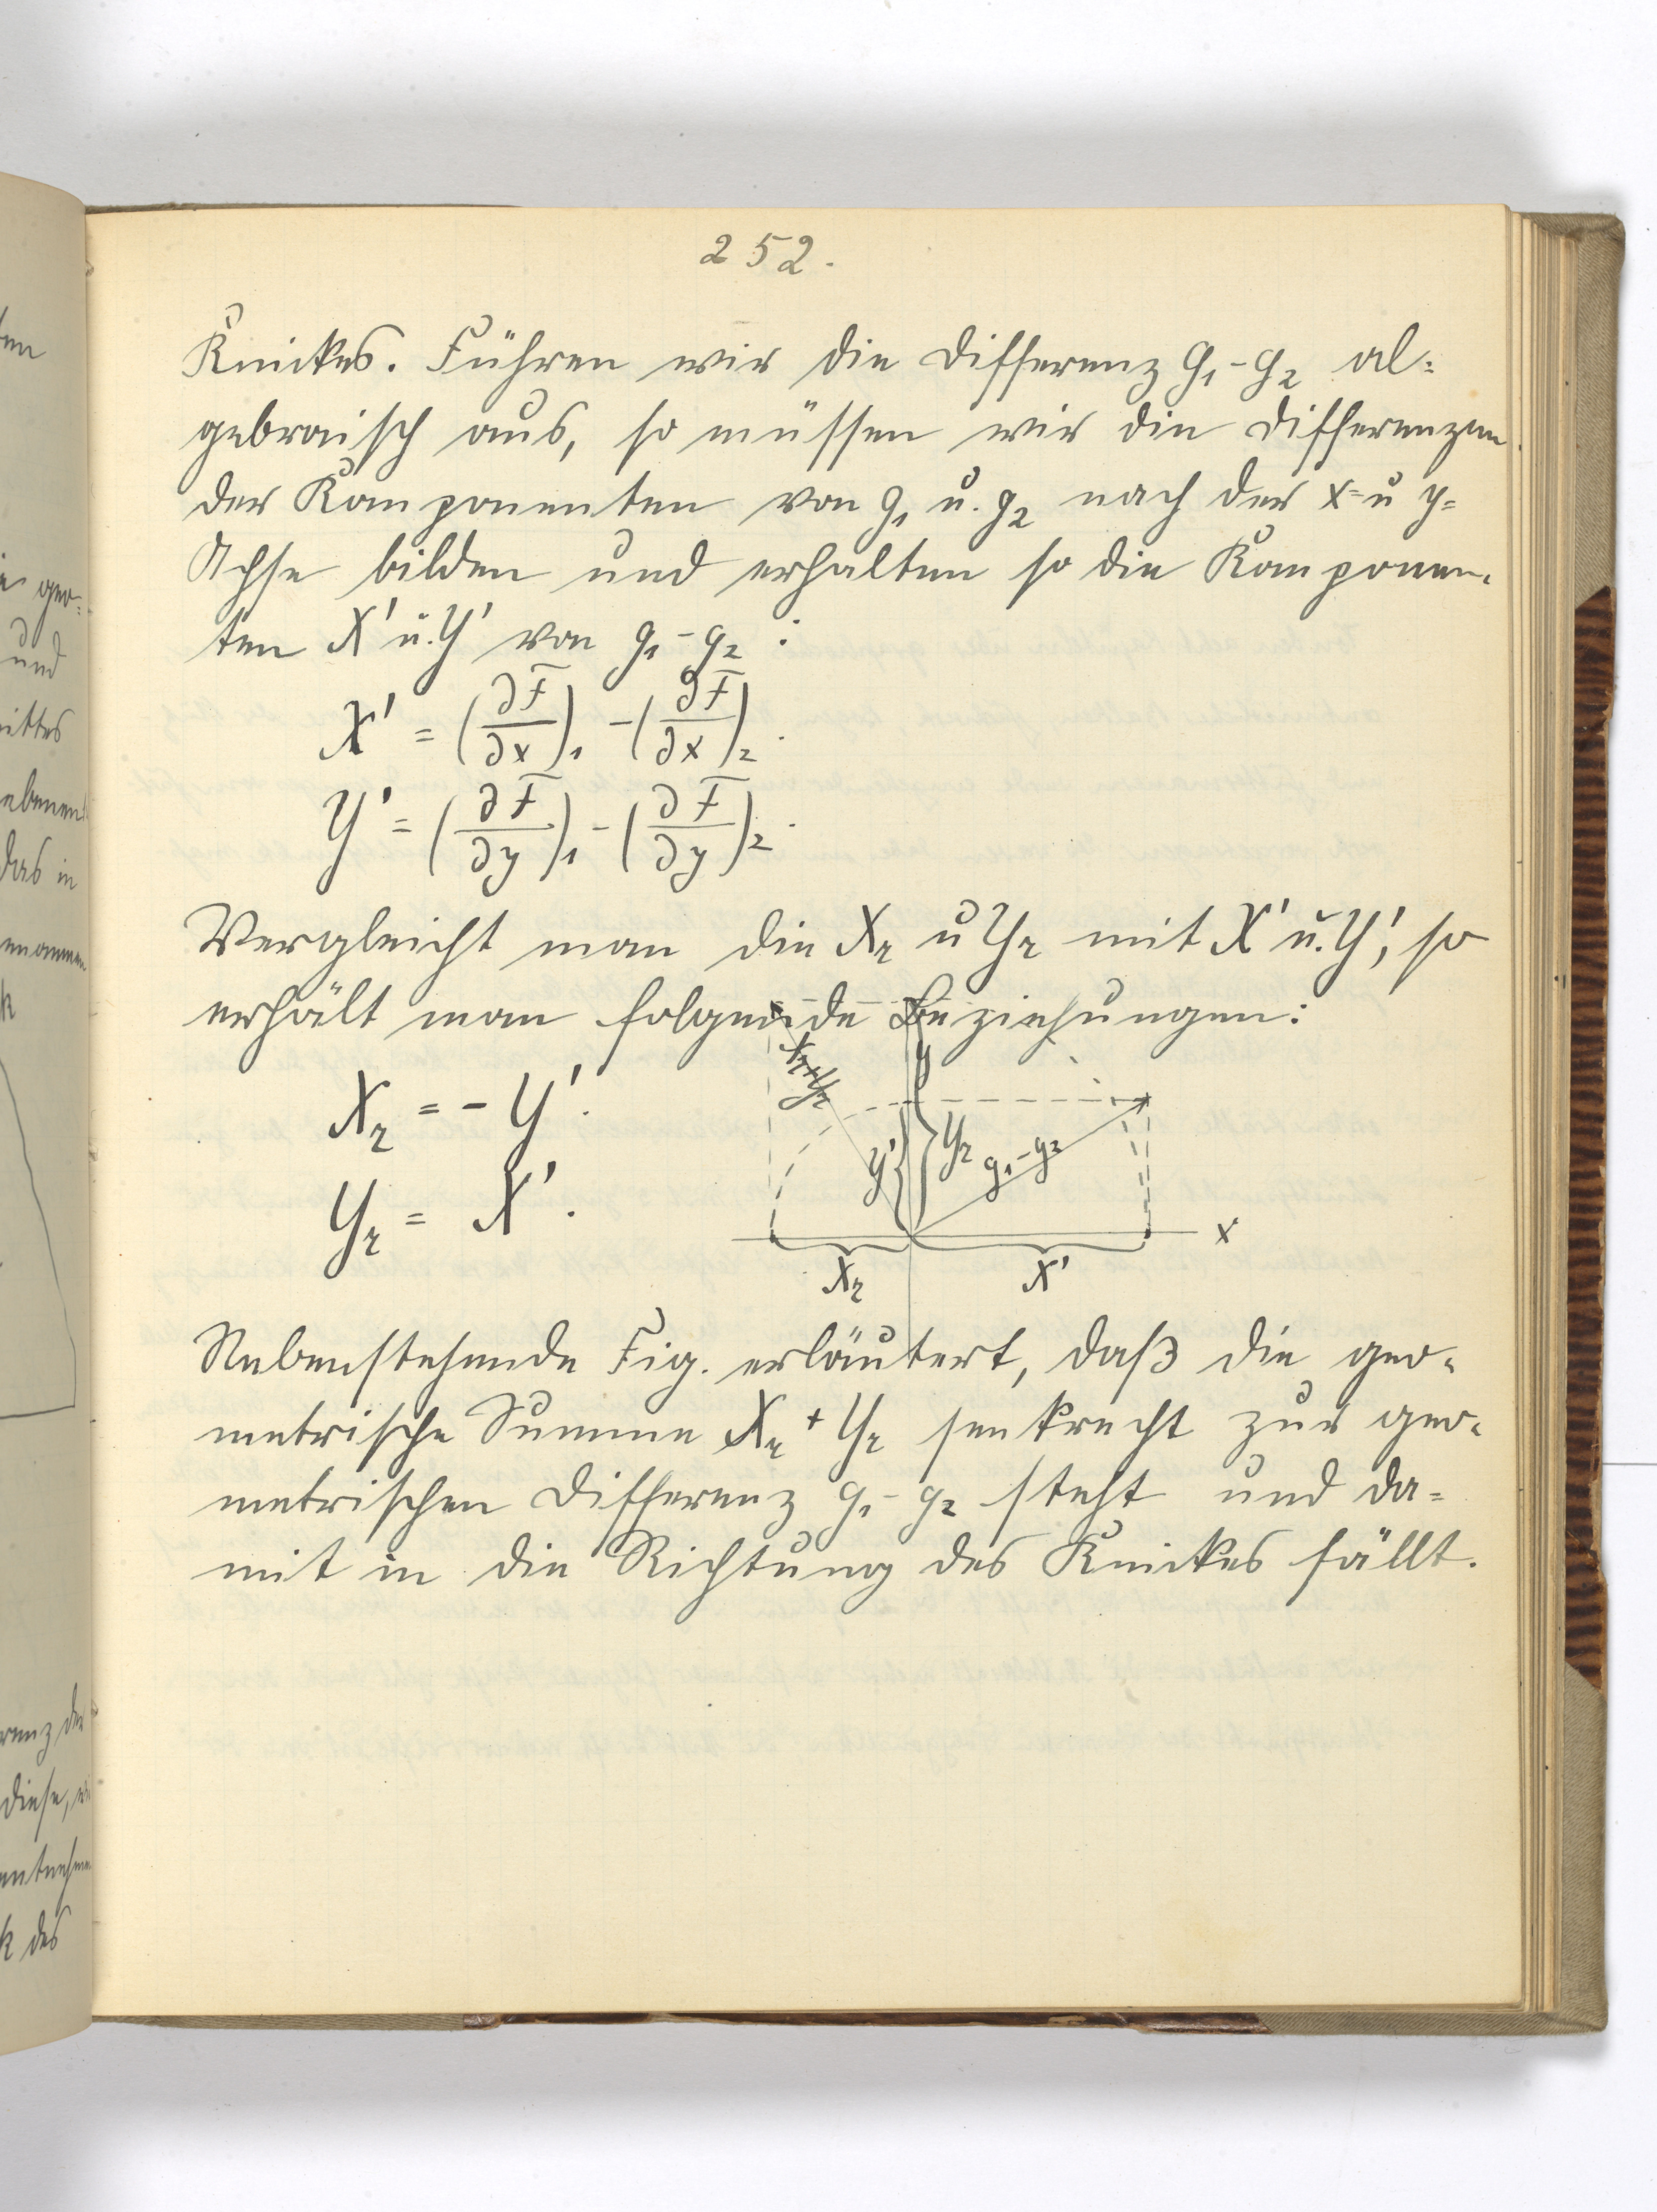 252.
Knickes. Führen wir die Differenz g₁-g₂ al=
gebraisch aus, so müssen wir die Differenzen
der Komponenten von g₁ u. g₂ nach der x= u y=
Achse bilden und erhalten so die Komponen=
ten X' u. Y' von g₁-g₂ :
X' = (∂F/∂x)₁ - (∂F/∂x)₂.
Y' = (∂F/∂y)₁ - (∂F/∂y)₂.
Vergleicht man die Xr u Yr mit X' u. Y', so
erhält man folgende Beziehungen:
Xr = - Y'.
Yr = X'.
Xr+Yr
y
Y'
Yr
g₁-g₂
x
Xr
X'
Nebenstehende Fig. erläutert, daß die geo=
metrische Summe Xr + Yr senkrecht zur geo=
metrischen Differenz g₁-g₂ steht und da=
mit in die Richtung des Knickes fällt.
ten
geo=
und
ebenen
das in
k
renz der
diese,
entnehmen
k des